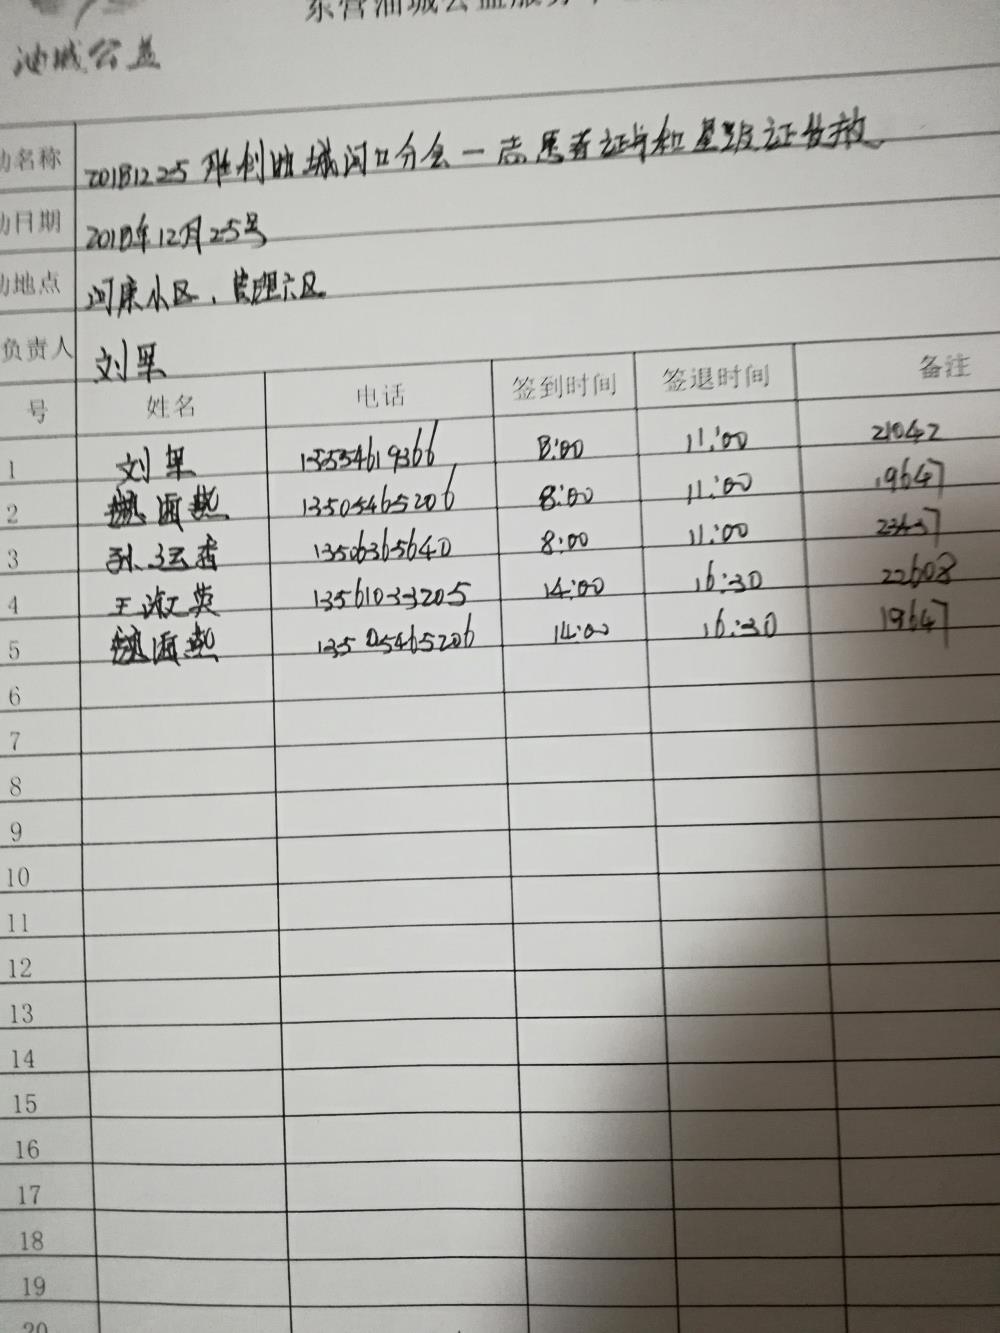 油城公益
动名称 20181225胜利油城河口分会一志愿者证书和星级证发放
动日期 2018年12月25号
动地点 河康小区、管理六区
负责人 刘军
号 姓名 电话 签到时间 签退时间 备注
1 刘军 13554619366 8:00 11:00 21042
2 13505465206 8:00 11:00 19647
3 孙云香 13506365640 8:00 11:00
4 王淑英 13561033205 14:00 16:30 22608
5 13505465206 14:00 16:30 19647
6
7
8
9
10
11
12
13
14
15
16
17
18
19
20